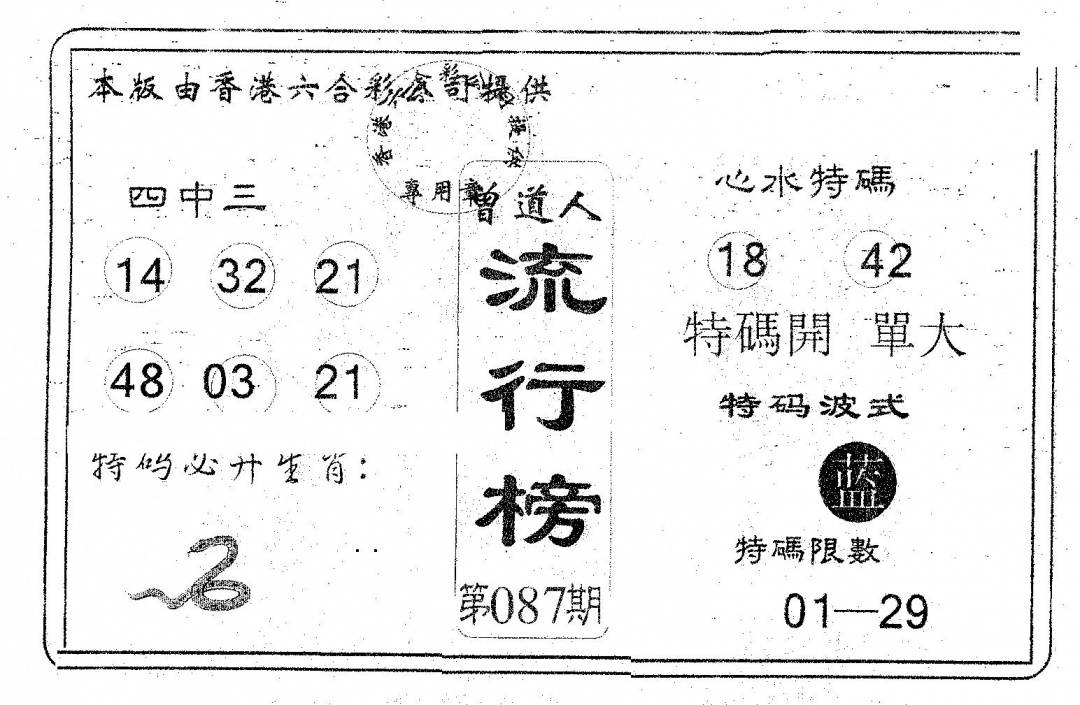 本版由香港六合彩會訂提供
專用章
四中三
14 32 21
48 03 21
特码必开生肖:
曾道人
流行榜
第087期
心水特碼
18 42
特碼開 單大
特码波式
蓝
特碼限數
01—29